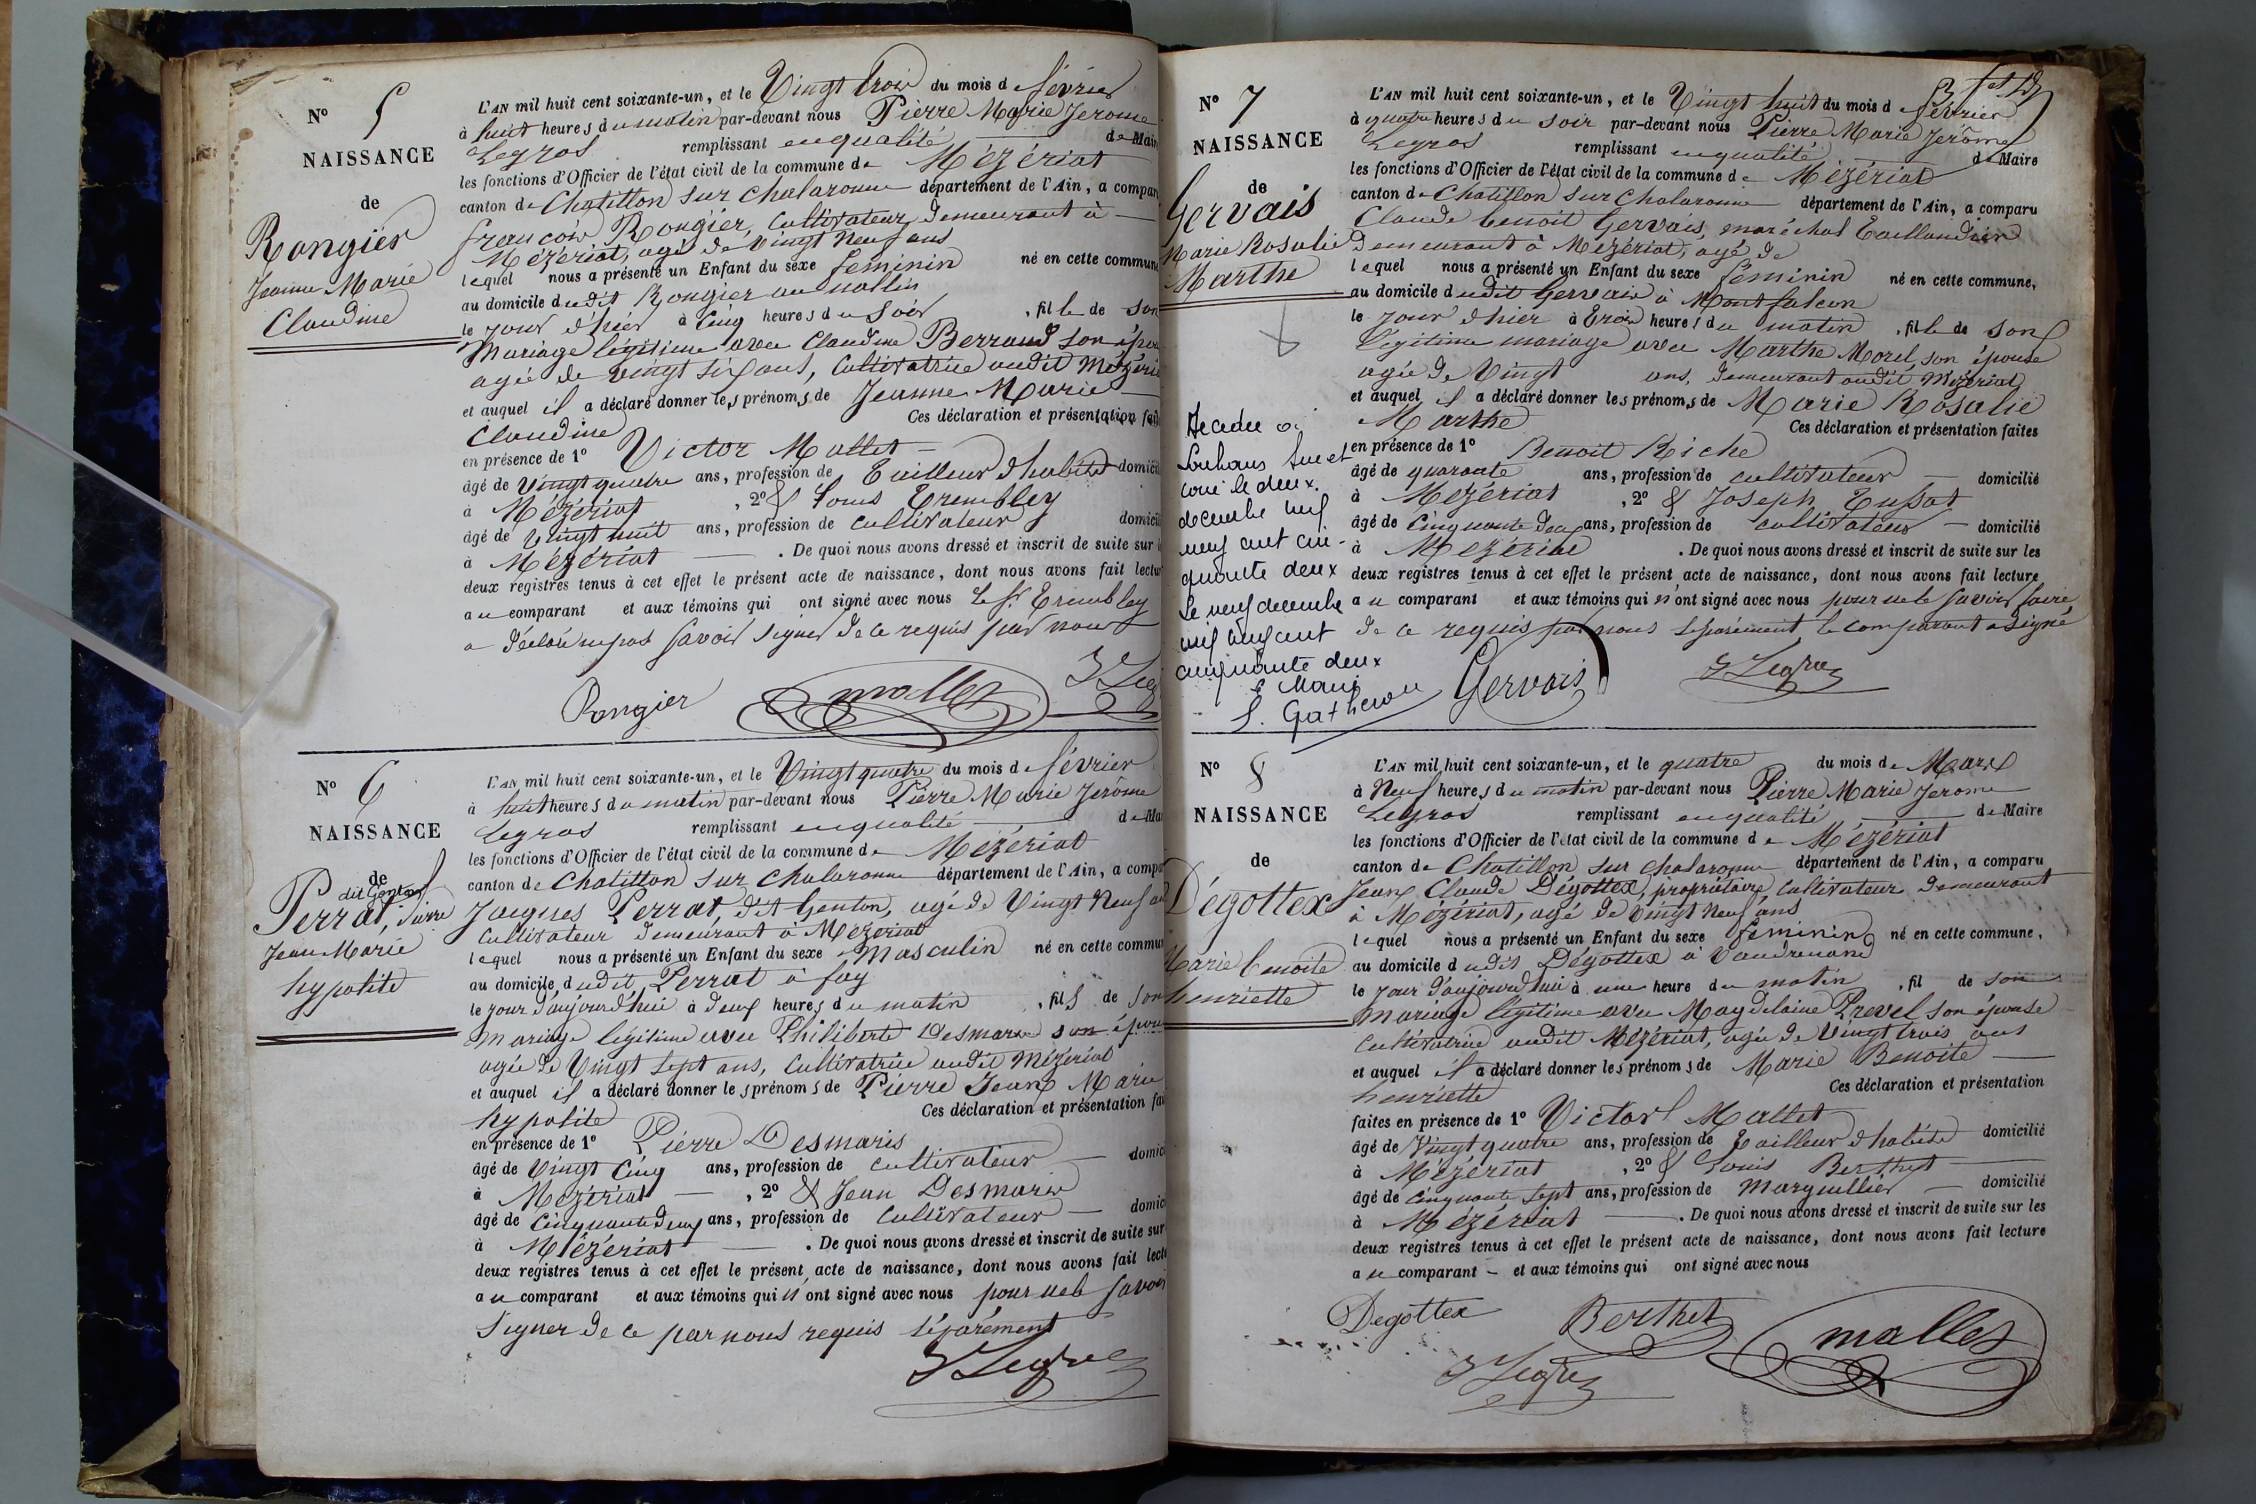 N° 5
NAISSANCE
de
Rongier
Jeanne Marie
Claudine
L'AN mil huit cent soixante-un, et le Vingt trois du mois de février
à huit heures du matin par-devant nous Pierre Marie Jerome
Legros remplissant en qualité de Maire
les fonctions d'Officier de l'état civil de la commune de Mézériat
canton de Chatillon sur Chalaronne département de l'Ain, a comparu
françois Rongier, Cultivateur, demeurant à
Mézériat, agé de vingt neuf ans
lequel nous a présenté un Enfant du sexe feminin né en cette commune
au domicile dudit Rongier au
le jour d'hier à cinq heures du soir , fille de son
mariage légitime avec Claudine Berraud son épouse
agée de vingt six ans, Cultivatrice audit Mézériat
et auquel il a déclaré donner les prénoms de Jeanne Marie
Claudine Ces déclaration et présentation faites
en présence de 1° Victor Mallet
âgé de vingt quatre ans, profession de Tailleur d'habits domicilié
à Mézériat , 2° & Louis Trembley
âgé de vingt huit ans, profession de cultivateur domicilié
à Mézériat . De quoi nous avons dressé et inscrit de suite sur les
deux registres tenus à cet effet le présent acte de naissance, dont nous avons fait lecture
au comparant et aux témoins qui ont signé avec nous le Sr Trembley
a déclaré ne pas savoir signer de ce requis par nous
Rongier mallet J Leg
N° 6
NAISSANCE
de
dit Genton
Perrat, Pierre
Jean Marie
hypolite
L'AN mil huit cent soixante-un, et le Vingt quatre du mois de février
à huit heures du matin par-devant nous Pierre Marie Jerôme
Legros remplissant en qualité de Maire
les fonctions d'Officier de l'état civil de la commune de Mézériat
canton de Chatillon sur Chalaronne département de l'Ain, a comparu
Jacques Perrat, dit Genton, agé de Vingt neuf ans
Cultivateur demeurant à Mézériat
lequel nous a présenté un Enfant du sexe Masculin né en cette commune
au domicile dudit Perrat à fay
le jour d'aujourd'hui à deux heures du matin , fils de son
mariage légitime avec Philiberte Desmaris son épouse
agée de Vingt sept ans, Cultivatrice audit Mézériat
et auquel il a déclaré donner les prénoms de Pierre Jean Marie
hypolite Ces déclaration et présentation faites
en présence de 1° Pierre Desmaris
âgé de vingt cinq ans, profession de cultivateur domicilié
à Mézériat , 2° & Jean Desmaris
âgé de cinquante deux ans, profession de Cultivateur domicilié
à Mézériat . De quoi nous avons dressé et inscrit de suite sur
deux registres tenus à cet effet le présent acte de naissance, dont nous avons fait lecture
au comparant et aux témoins qui n'ont signé avec nous pour ne le savoir
signer de ce par nous requis séparément
J Legros
N° 7
NAISSANCE
de
Gervais
Marie Rosalie
Marthe
L'AN mil huit cent soixante-un, et le Vingt huit du mois de février
à quatre heures du soir par-devant nous Pierre Marie Jerôme
Legros remplissant en qualité de Maire
les fonctions d'Officier de l'état civil de la commune de Mézériat
canton de Chatillon sur Chalaronne département de l'Ain, a comparu
Claude benoit Gervais, maréchal Taillandier
demeurant à Mézériat, agé de
lequel nous a présenté un Enfant du sexe féminin né en cette commune,
au domicile dudit Gervais à Montfalcon
le jour d'hier à trois heures du matin , fille de son
légitime mariage avec Marthe Morel, son épouse
agée de Vingt ans, demeurant audit Mézériat
et auquel il a déclaré donner les prénoms de Marie Rosalie
Marthe Ces déclaration et présentation faites
en présence de 1° Benoit Riche
âgé de quarante ans, profession de cultivateur domicilié
à Mézériat , 2° & Joseph
âgé de cinquante deux ans, profession de cultivateur domicilié
à Mézériat . De quoi nous avons dressé et inscrit de suite sur les
deux registres tenus à cet effet le présent acte de naissance, dont nous avons fait lecture
au comparant et aux témoins qui n'ont signé avec nous pour ne le savoir faire
de ce requis par nous séparément, le comparant a signé
Gervais J Legros
Décédée à
Louhans Saône et
Loire le deux
décembre mil
neuf cent cin-
quante deux
Le neuf décembre
mil neuf cent
cinquante deux
Le Maire
N° 8
NAISSANCE
de
Dégottex
Marie benoite
henriette
L'AN mil huit cent soixante-un, et le quatre du mois de Mars
à Neuf heures du matin par-devant nous Pierre Marie Jerome
Legros remplissant en qualité de Maire
les fonctions d'Officier de l'état civil de la commune de Mézériat
canton de Chatillon sur Chalaronne département de l'Ain, a comparu
Jean Claude Dégottex, propriétaire, Cultivateur demeurant
à Mézériat, agé de vingt neuf ans
lequel nous a présenté un Enfant du sexe feminin né en cette commune,
au domicile dudit Dégottex à Vaudrenand
le jour d'aujourd'hui à une heure du matin , fil de son
mariage légitime avec Magdelaine Prevel son épouse
Cultivatrice audit Mézériat, agée de vingt trois ans
et auquel il a déclaré donner les prénoms de Marie Benoite
henriette Ces déclaration et présentation
faites en présence de 1° Victor Mallet
âgé de Vingt quatre ans, profession de Tailleur d'habits domicilié
à Mézériat , 2° & Louis Berthet
âgé de cinquante sept ans, profession de Marguillier domicilié
à Mézériat . De quoi nous avons dressé et inscrit de suite sur les
deux registres tenus à cet effet le présent acte de naissance, dont nous avons fait lecture
au comparant et aux témoins qui ont signé avec nous
Degottex Berthet mallet
J Legros